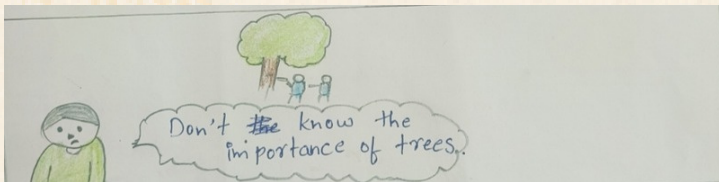 Don't know the
importance of trees..